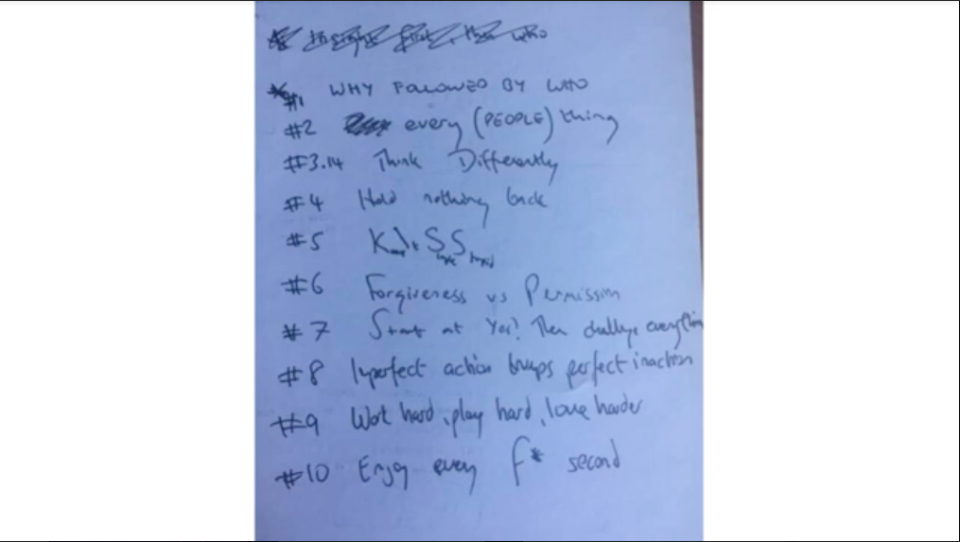 #1 WHY FOLLOWED BY WHO
#2 every (PEOPLE) thing
#3.14 Think Differently
#4 Hold nothing back
#5 K.I.S.S.
#6 Forgiveness vs Permission
#7 Start at Yes! Then challenge everything
#8 Imperfect action trumps perfect inaction
#9 Work hard, play hard, love harder
#10 Enjoy every f* second